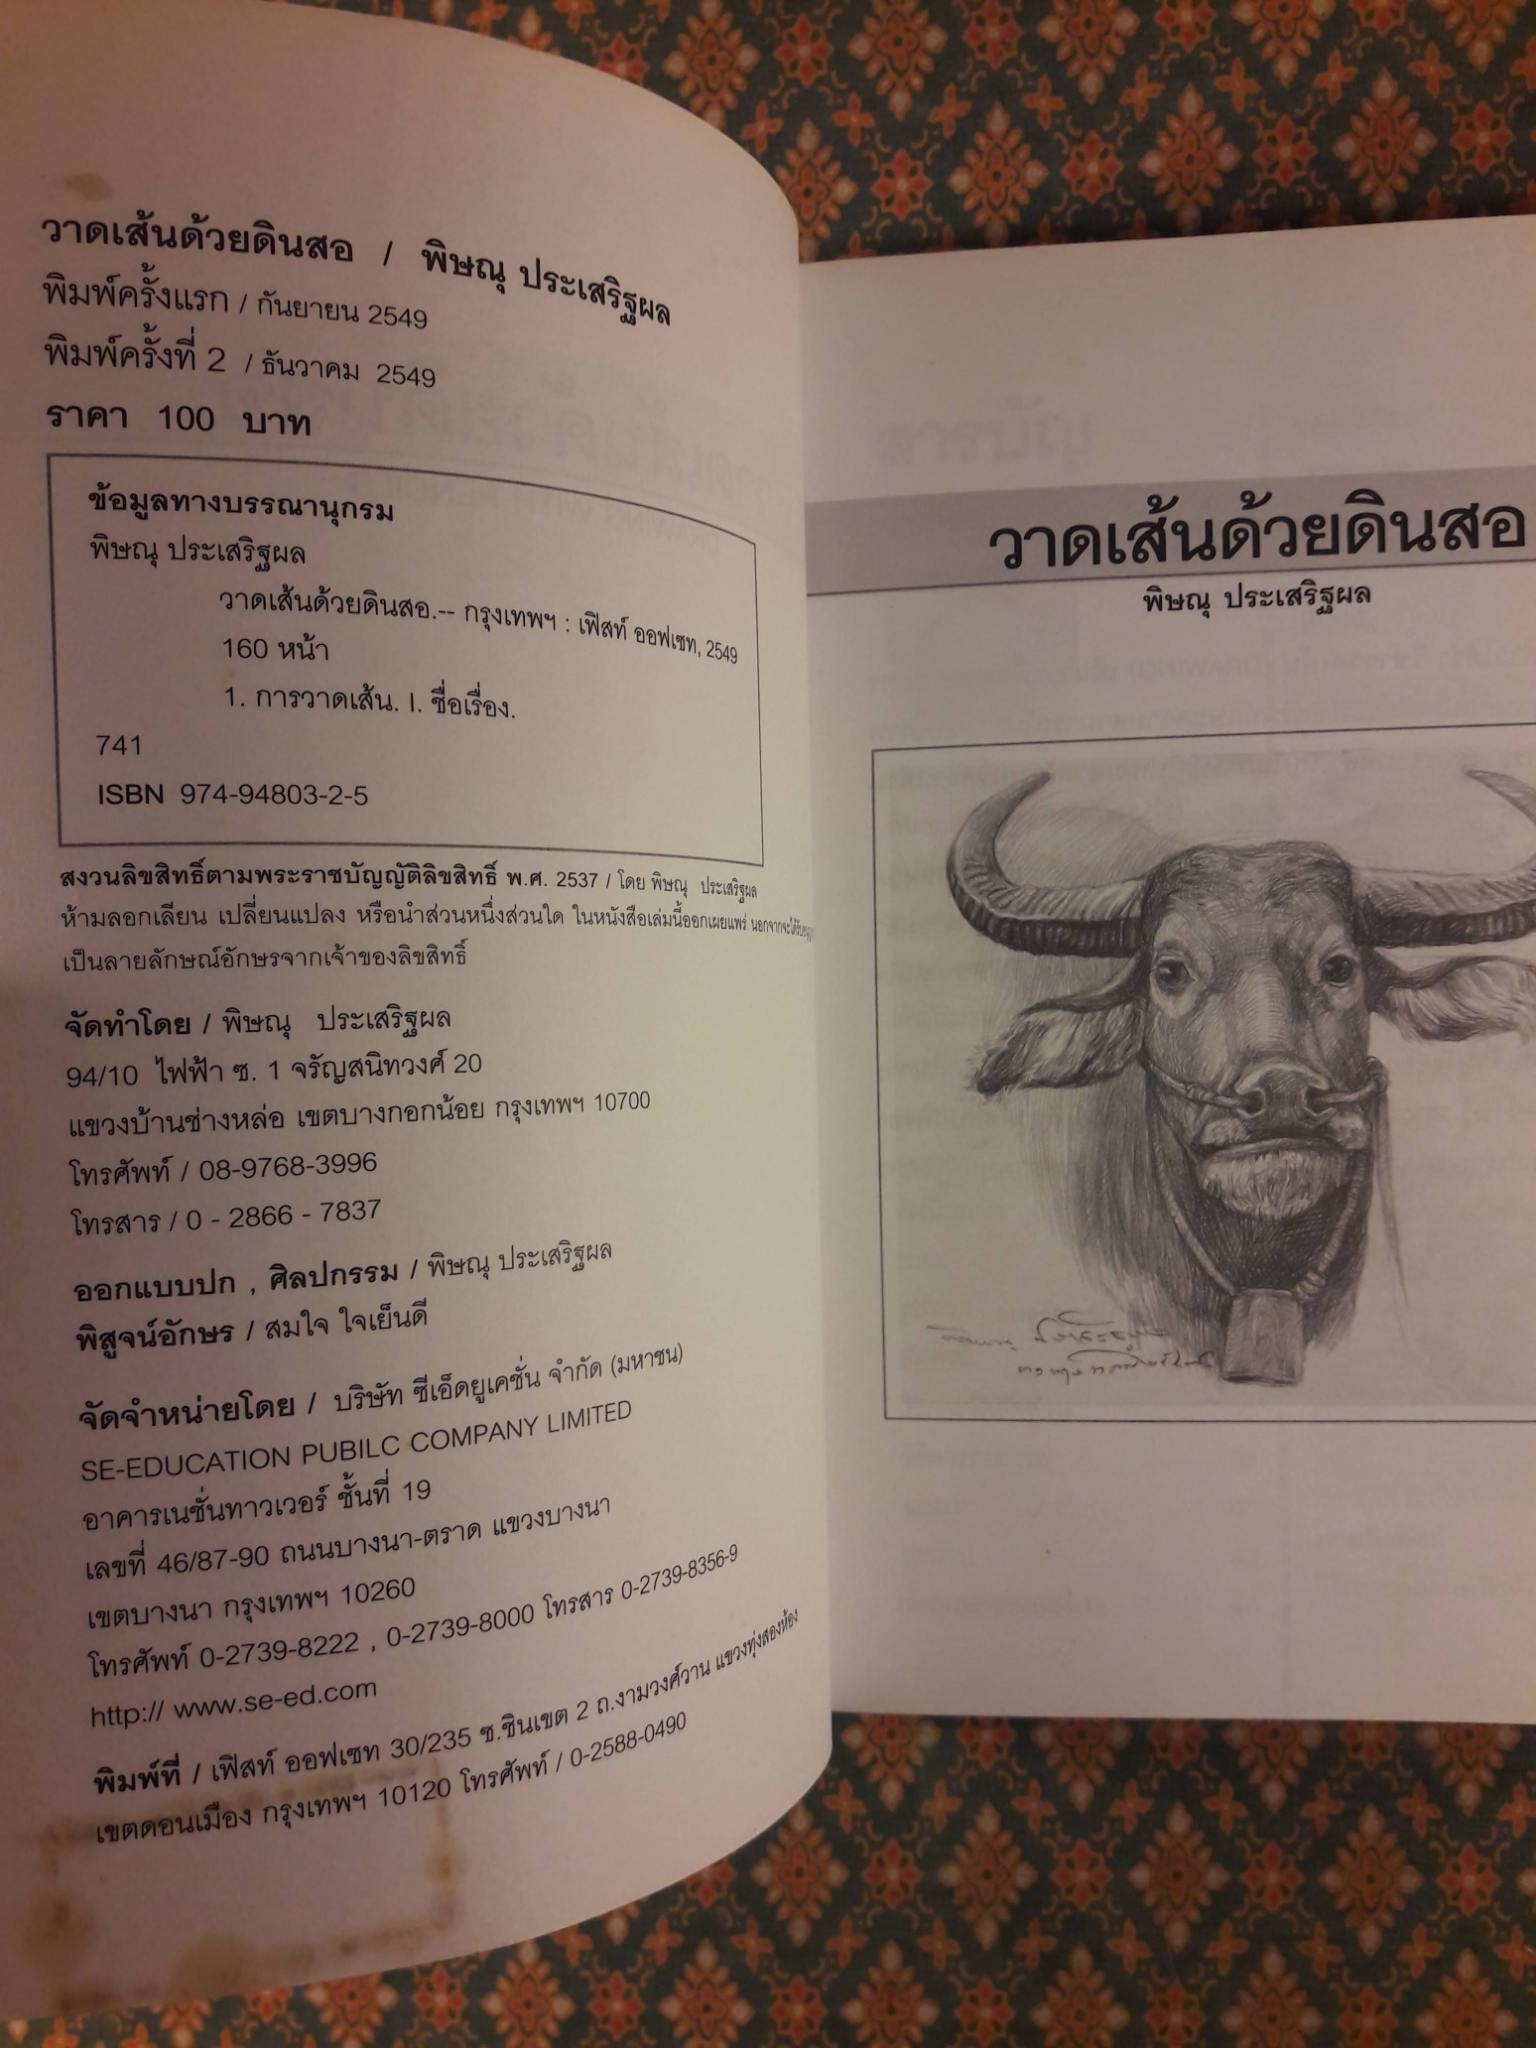 วาดเส้นด้วยดินสอ / พิษณุ ประเสริฐผล
พิมพ์ครั้งแรก / กันยายน 2549
พิมพ์ครั้งที่ 2 / ธันวาคม 2549
ราคา 100 บาท
ข้อมูลทางบรรณานุกรม
พิษณุ ประเสริฐผล
วาดเส้นด้วยดินสอ.-- กรุงเทพฯ : เฟิสท์ ออฟเซท, 2549
160 หน้า
1. การวาดเส้น. I. ชื่อเรื่อง.
741
ISBN 974-94803-2-5
สงวนลิขสิทธิ์ตามพระราชบัญญัติลิขสิทธิ์ พ.ศ. 2537 / โดย พิษณุ ประเสริฐผล
ห้ามลอกเลียน เปลี่ยนแปลง หรือนำส่วนหนึ่งส่วนใด ในหนังสือเล่มนี้ออกเผยแพร่ นอกจากจะได้รับ
เป็นลายลักษณ์อักษรจากเจ้าของลิขสิทธิ์
จัดทำโดย / พิษณุ ประเสริฐผล
94/10 ไฟฟ้า ซ. 1 จรัญสนิทวงศ์ 20
แขวงบ้านช่างหล่อ เขตบางกอกน้อย กรุงเทพฯ 10700
โทรศัพท์ / 08-9768-3996
โทรสาร / 0 - 2866 - 7837
ออกแบบปก , ศิลปกรรม / พิษณุ ประเสริฐผล
พิสูจน์อักษร / สมใจ ใจเย็นดี
จัดจำหน่ายโดย / บริษัท ซีเอ็ดยูเคชั่น จำกัด (มหาชน)
SE-EDUCATION PUBILC COMPANY LIMITED
อาคารเนชั่นทาวเวอร์ ชั้นที่ 19
เลขที่ 46/87-90 ถนนบางนา-ตราด แขวงบางนา
เขตบางนา กรุงเทพฯ 10260
โทรศัพท์ 0-2739-8222 , 0-2739-8000 โทรสาร 0-2739-8356-9
http:// www.se-ed.com
พิมพ์ที่ / เฟิสท์ ออฟเซท 30/235 ซ.ชินเขต 2 ถ.งามวงศ์วาน แขวงทุ่งสองห้อง
เขตดอนเมือง กรุงเทพฯ 10120 โทรศัพท์ / 0-2588-0490
วาดเส้นด้วยดินสอ
พิษณุ ประเสริฐผล